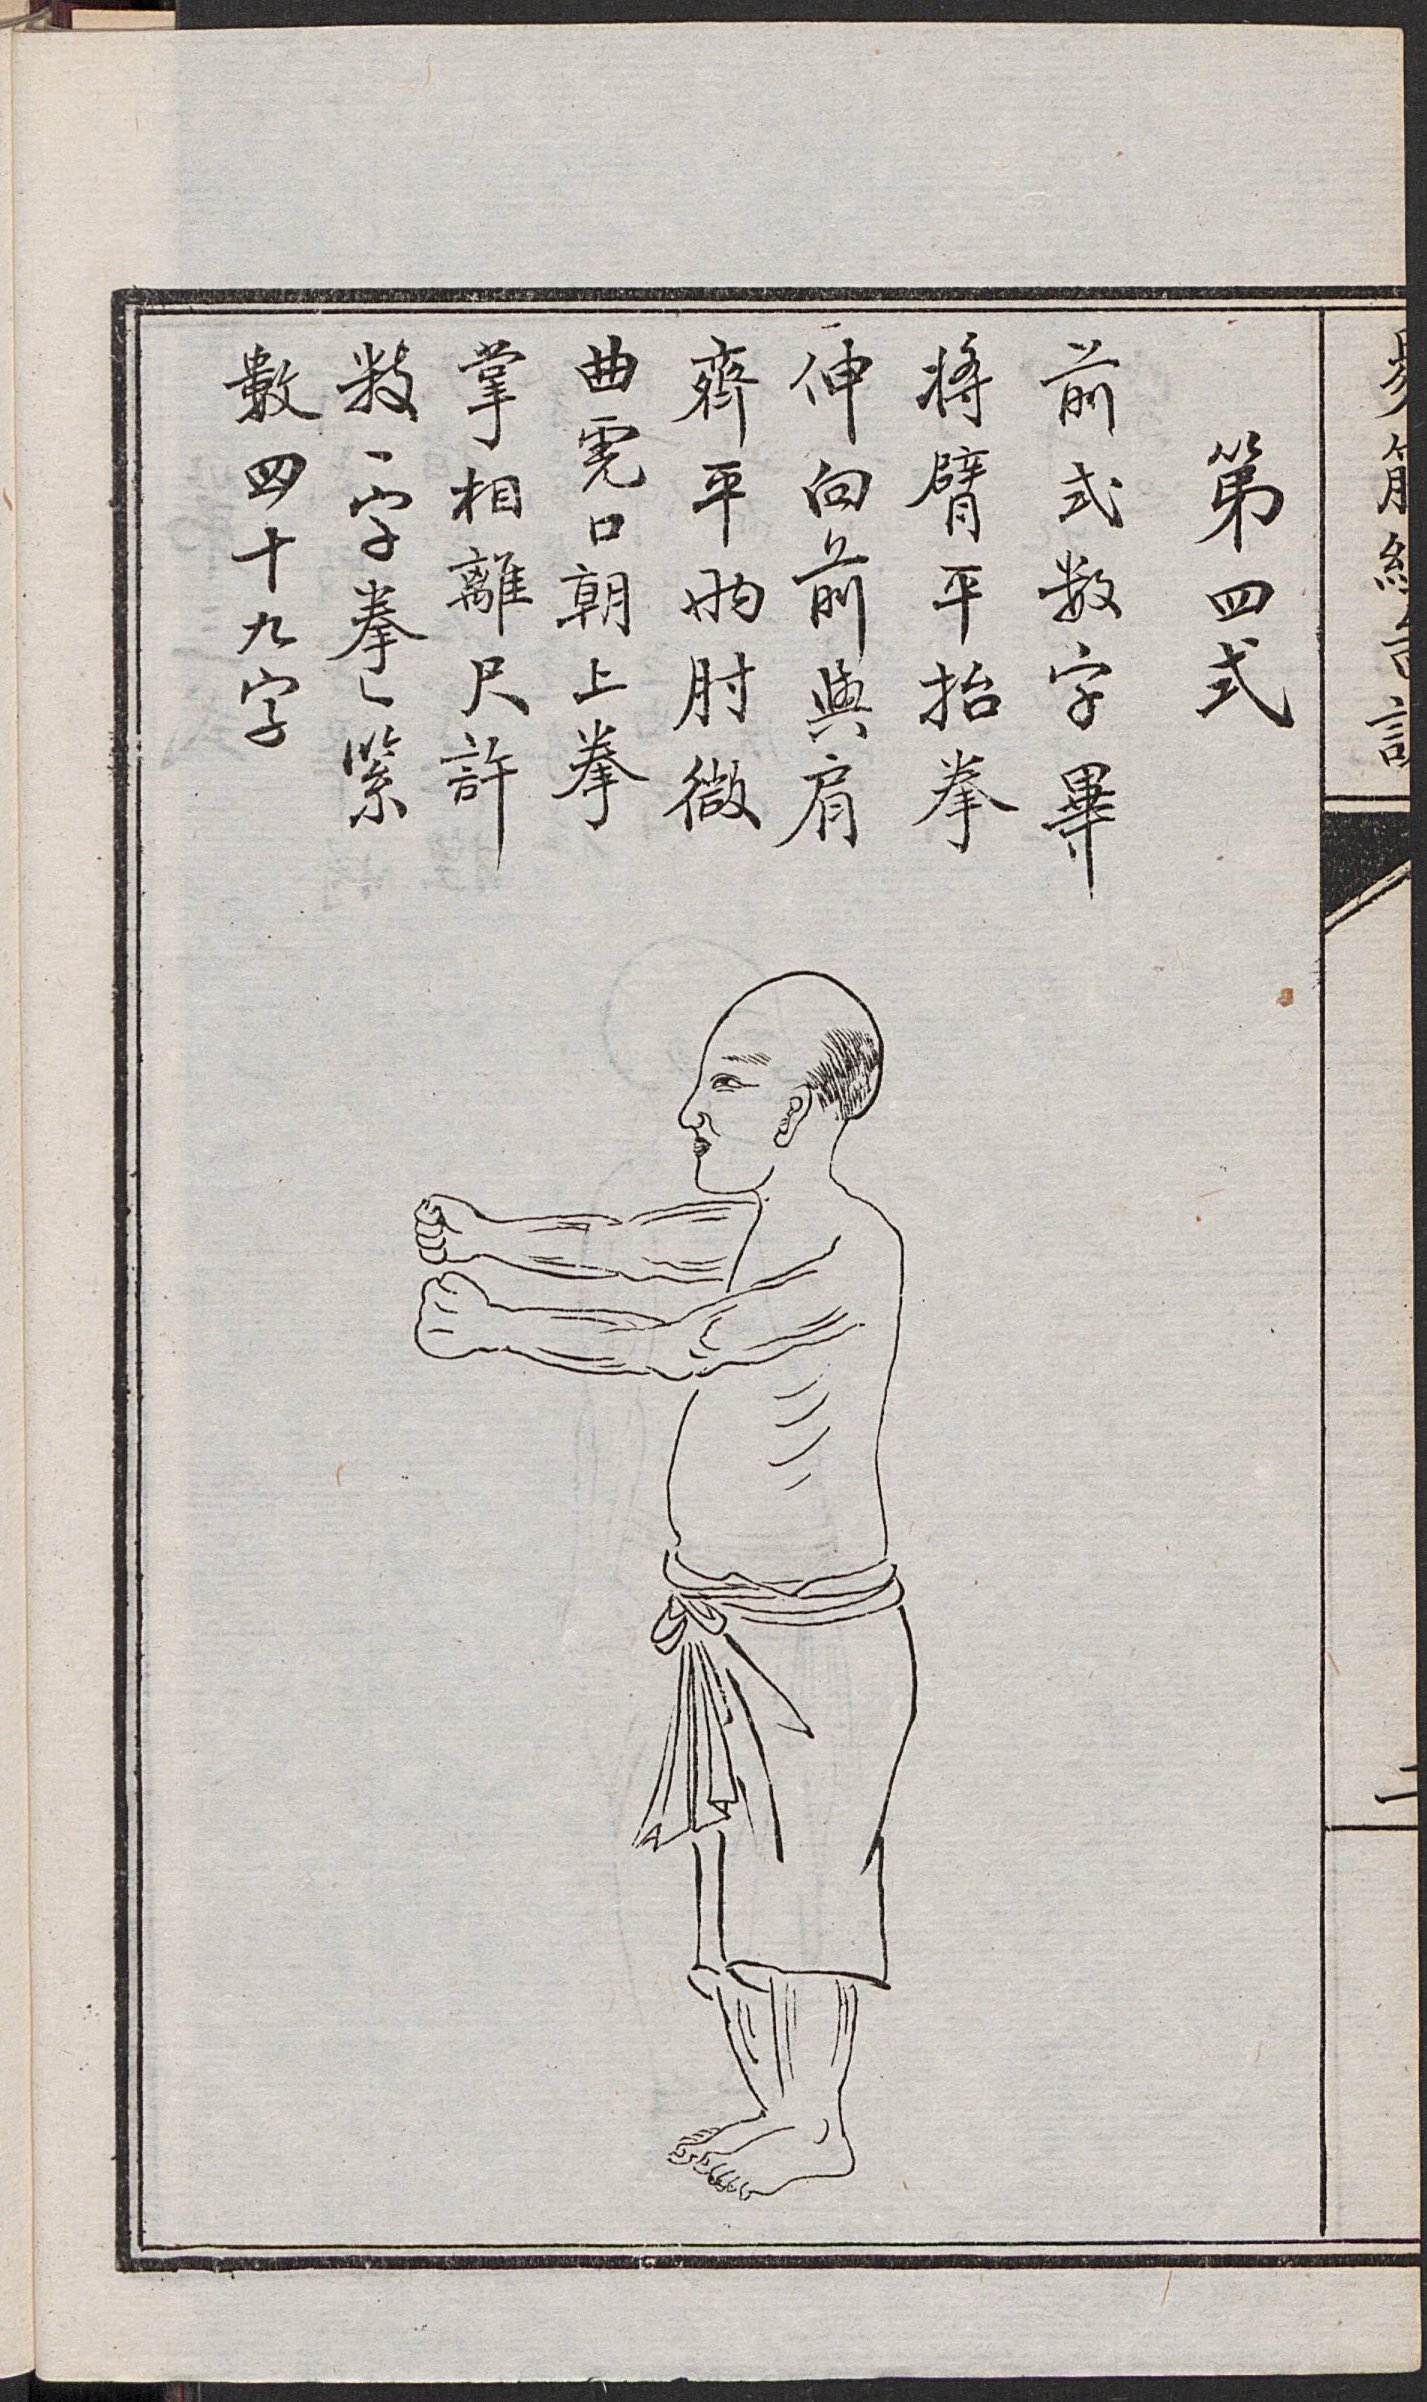 易筋經
第四式
前式数字畢
將臂平抬拳
伸向前與肩
齊平兩肘微
曲虎口朝上拳
掌相離尺許
数一字拳一緊
數四十九字
二